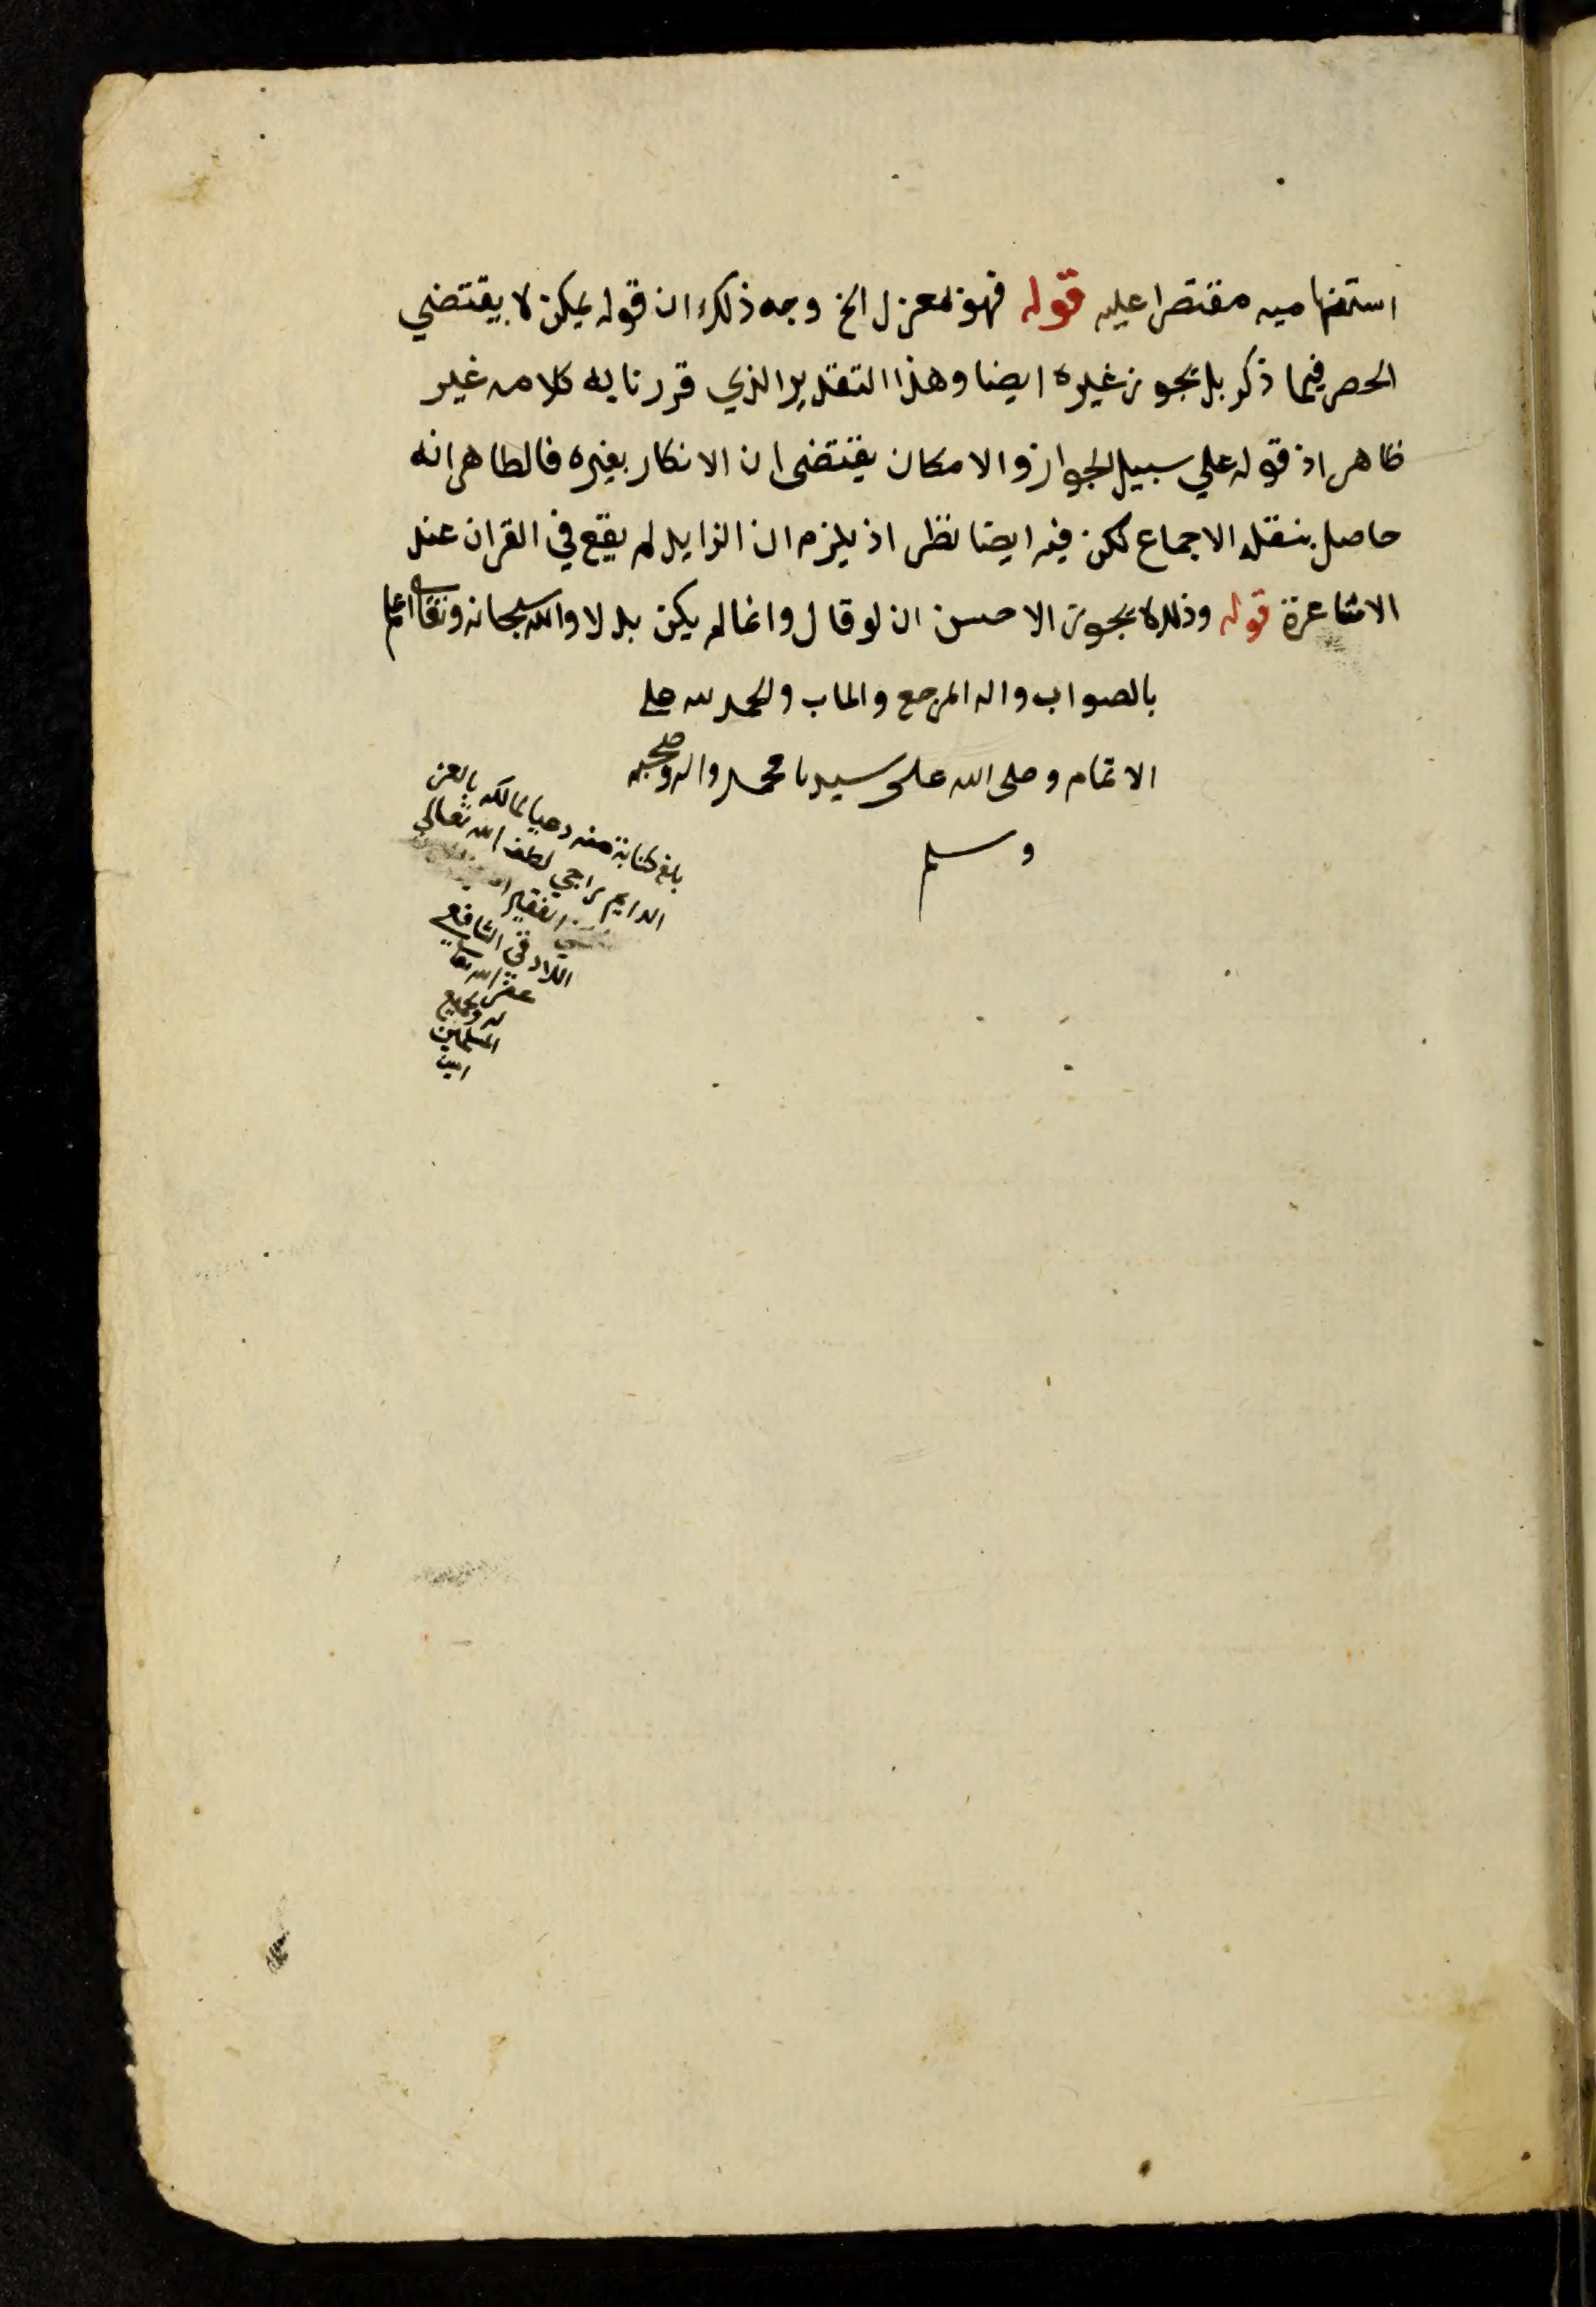 استفهاميه مقتصرا عليه قوله فهو بمعزل الخ وجه ذلك ان قوله يمكن لا يقتضي
الحصر فيما ذكر بل يجوز غيره ايضا وهذا التقدير الذي قررنا به كلامه غير
ظاهر اذ قوله علي سبيل الجواز والامكان يقتضى ان الانكار بغيره فالظاهر انه
حاصل بنقله الاجماع لكن فيه ايضا نظر اذ يلزم ان الزايد لم يقع في القران عند
الاشاعرة قوله وذلك لا يجوز الاحسن ان لو قال وانما لم يكن بدلا والله سبحانه وتعا اعلم
بالصواب واله المرجع والماب والحمد لله على
الاتمام وصلى الله على سيدنا محمد واله وصحبه
وسلم
بلغ كتابة منه داعيا لمالكه بالعز
الدايم راجي لطف الله تعالي
الفقير
اللادقي الشافعي
غفر الله تعا
له ولجميع
المسلمين
امين